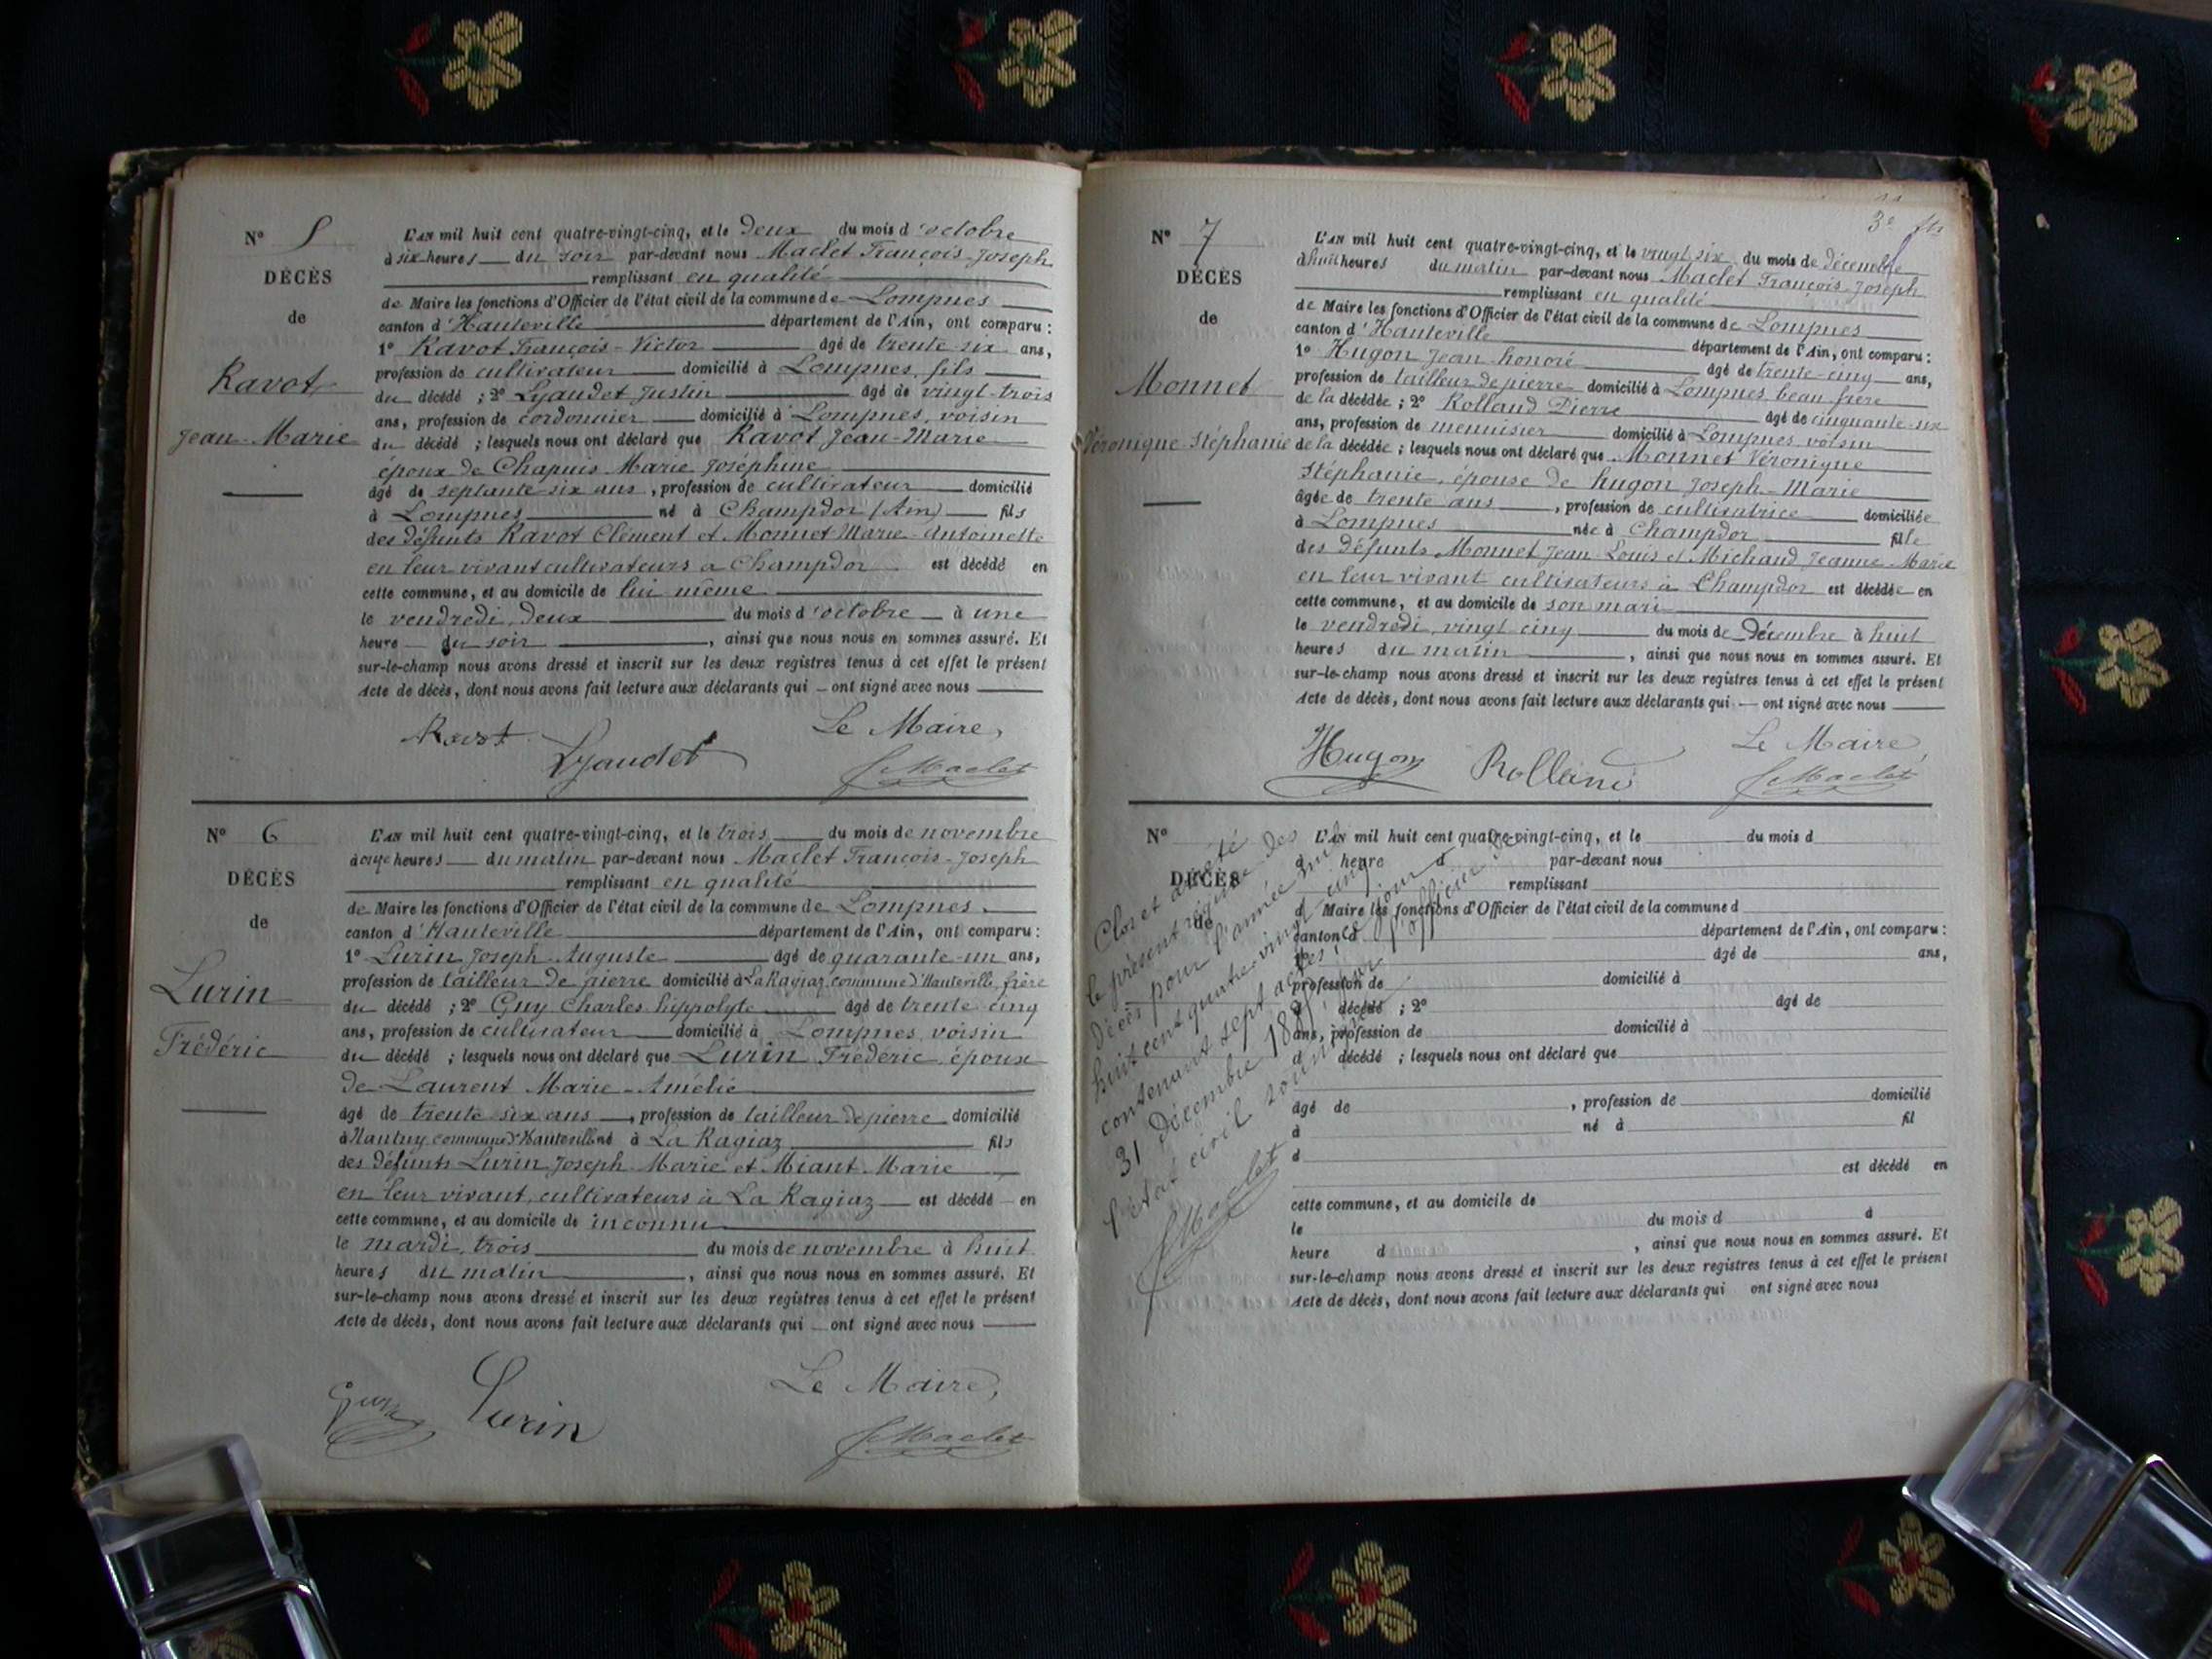 N° 5
DÉCÈS
de
Ravot
Jean-Marie
L'AN mil huit cent quatre-vingt-cinq, et le deux du mois d'octobre
à six heures du soir par-devant nous Maclet François-Joseph
remplissant en qualité
de Maire les fonctions d'Officier de l'état civil de la commune de Lompnes
canton d'Hauteville département de l'Ain, ont comparu :
1° Ravot François-Victor âgé de trente six ans,
profession de cultivateur domicilié à Lompnes, fils
du décédé ; 2° Lyaudet Justin âgé de vingt-trois
ans, profession de cordonnier domicilié à Lompnes, voisin
du décédé ; lesquels nous ont déclaré que Ravot Jean-Marie
époux de Chapuis Marie Joséphine
âgé de septante-six ans, profession de cultivateur domicilié
à Lompnes né à Champdor (Ain) fils
des défunts Ravot Clément et Monnet Marie-Antoinette
en leur vivant cultivateurs à Champdor est décédé en
cette commune, et au domicile de lui même
le vendredi, deux du mois d'octobre à une
heure du soir, ainsi que nous nous en sommes assuré. Et
sur-le-champ nous avons dressé et inscrit sur les deux registres tenus à cet effet le présent
Acte de décès, dont nous avons fait lecture aux déclarants qui ont signé avec nous
Ravot Lyaudet Le Maire,
Maclet
N° 6
DÉCÈS
de
Lurin
Frédéric
L'AN mil huit cent quatre-vingt-cinq, et le trois du mois de novembre
à onze heures du matin par-devant nous Maclet François-Joseph
remplissant en qualité
de Maire les fonctions d'Officier de l'état civil de la commune de Lompnes
canton d'Hauteville département de l'Ain, ont comparu :
1° Lurin Joseph-Auguste âgé de quarante-un ans,
profession de tailleur de pierre domicilié à La Ragiaz, commune d'Hauteville, frère
du décédé ; 2° Guy Charles hippolyte âgé de trente cinq
ans, profession de cultivateur domicilié à Lompnes, voisin
du décédé ; lesquels nous ont déclaré que Lurin Frédéric, époux
de Laurent Marie-Amélie
âgé de trente six ans, profession de tailleur de pierre domicilié
à Nantuy, commune d'Hauteville né à La Ragiaz fils
des défunts Lurin Joseph-Marie et Miant Marie
en leur vivant, cultivateurs à La Ragiaz est décédé en
cette commune, et au domicile de inconnu
le mardi, trois du mois de novembre à huit
heures du matin, ainsi que nous nous en sommes assuré. Et
sur-le-champ nous avons dressé et inscrit sur les deux registres tenus à cet effet le présent
Acte de décès, dont nous avons fait lecture aux déclarants qui ont signé avec nous
Guy Lurin Le Maire,
Maclet
3e
N° 7
DÉCÈS
de
Monnet
Véronique-Stéphanie
L'AN mil huit cent quatre-vingt-cinq, et le vingt six du mois de décembre
à huit heures du matin par-devant nous Maclet François-Joseph
remplissant en qualité
de Maire les fonctions d'Officier de l'état civil de la commune de Lompnes
canton d'Hauteville département de l'Ain, ont comparu :
1° Hugon Jean honoré âgé de trente-cinq ans,
profession de tailleur de pierre domicilié à Lompnes, beau-frère
de la décédée ; 2° Rolland Pierre âgé de cinquante-six
ans, profession de menuisier domicilié à Lompnes, voisin
de la décédée ; lesquels nous ont déclaré que Monnet Véronique
Stéphanie, épouse de hugon Joseph-Marie
âgée de trente ans, profession de cultivatrice domiciliée
à Lompnes née à Champdor fille
des défunts Monnet Jean-Louis et Michaud Jeanne-Marie
en leur vivant cultivateurs à Champdor est décédée en
cette commune, et au domicile de son mari
le vendredi, vingt cinq du mois de Décembre à huit
heures du matin, ainsi que nous nous en sommes assuré. Et
sur-le-champ nous avons dressé et inscrit sur les deux registres tenus à cet effet le présent
Acte de décès, dont nous avons fait lecture aux déclarants qui ont signé avec nous
Hugon Rolland Le Maire,
Maclet
N°
DÉCÈS
de
Clos et arrêté
le présent registre des
décès pour l'année mil
huit cent quatre-vingt cinq
contenant sept actes, ce jour
31 décembre 1885, par l'officier de
l'état civil soussigné
Maclet
L'AN mil huit cent quatre-vingt-cinq, et le du mois d
à heure d par-devant nous
remplissant
d Maire les fonctions d'Officier de l'état civil de la commune d
canton d département de l'Ain, ont comparu :
1° âgé de ans,
profession de domicilié à
d décédé ; 2° âgé de
ans, profession de domicilié à
d décédé ; lesquels nous ont déclaré que
âgé de , profession de domicilié
à né à fil
d
est décédé en
cette commune, et au domicile de
le du mois d à
heure d , ainsi que nous nous en sommes assuré. Et
sur-le-champ nous avons dressé et inscrit sur les deux registres tenus à cet effet le présent
Acte de décès, dont nous avons fait lecture aux déclarants qui ont signé avec nous